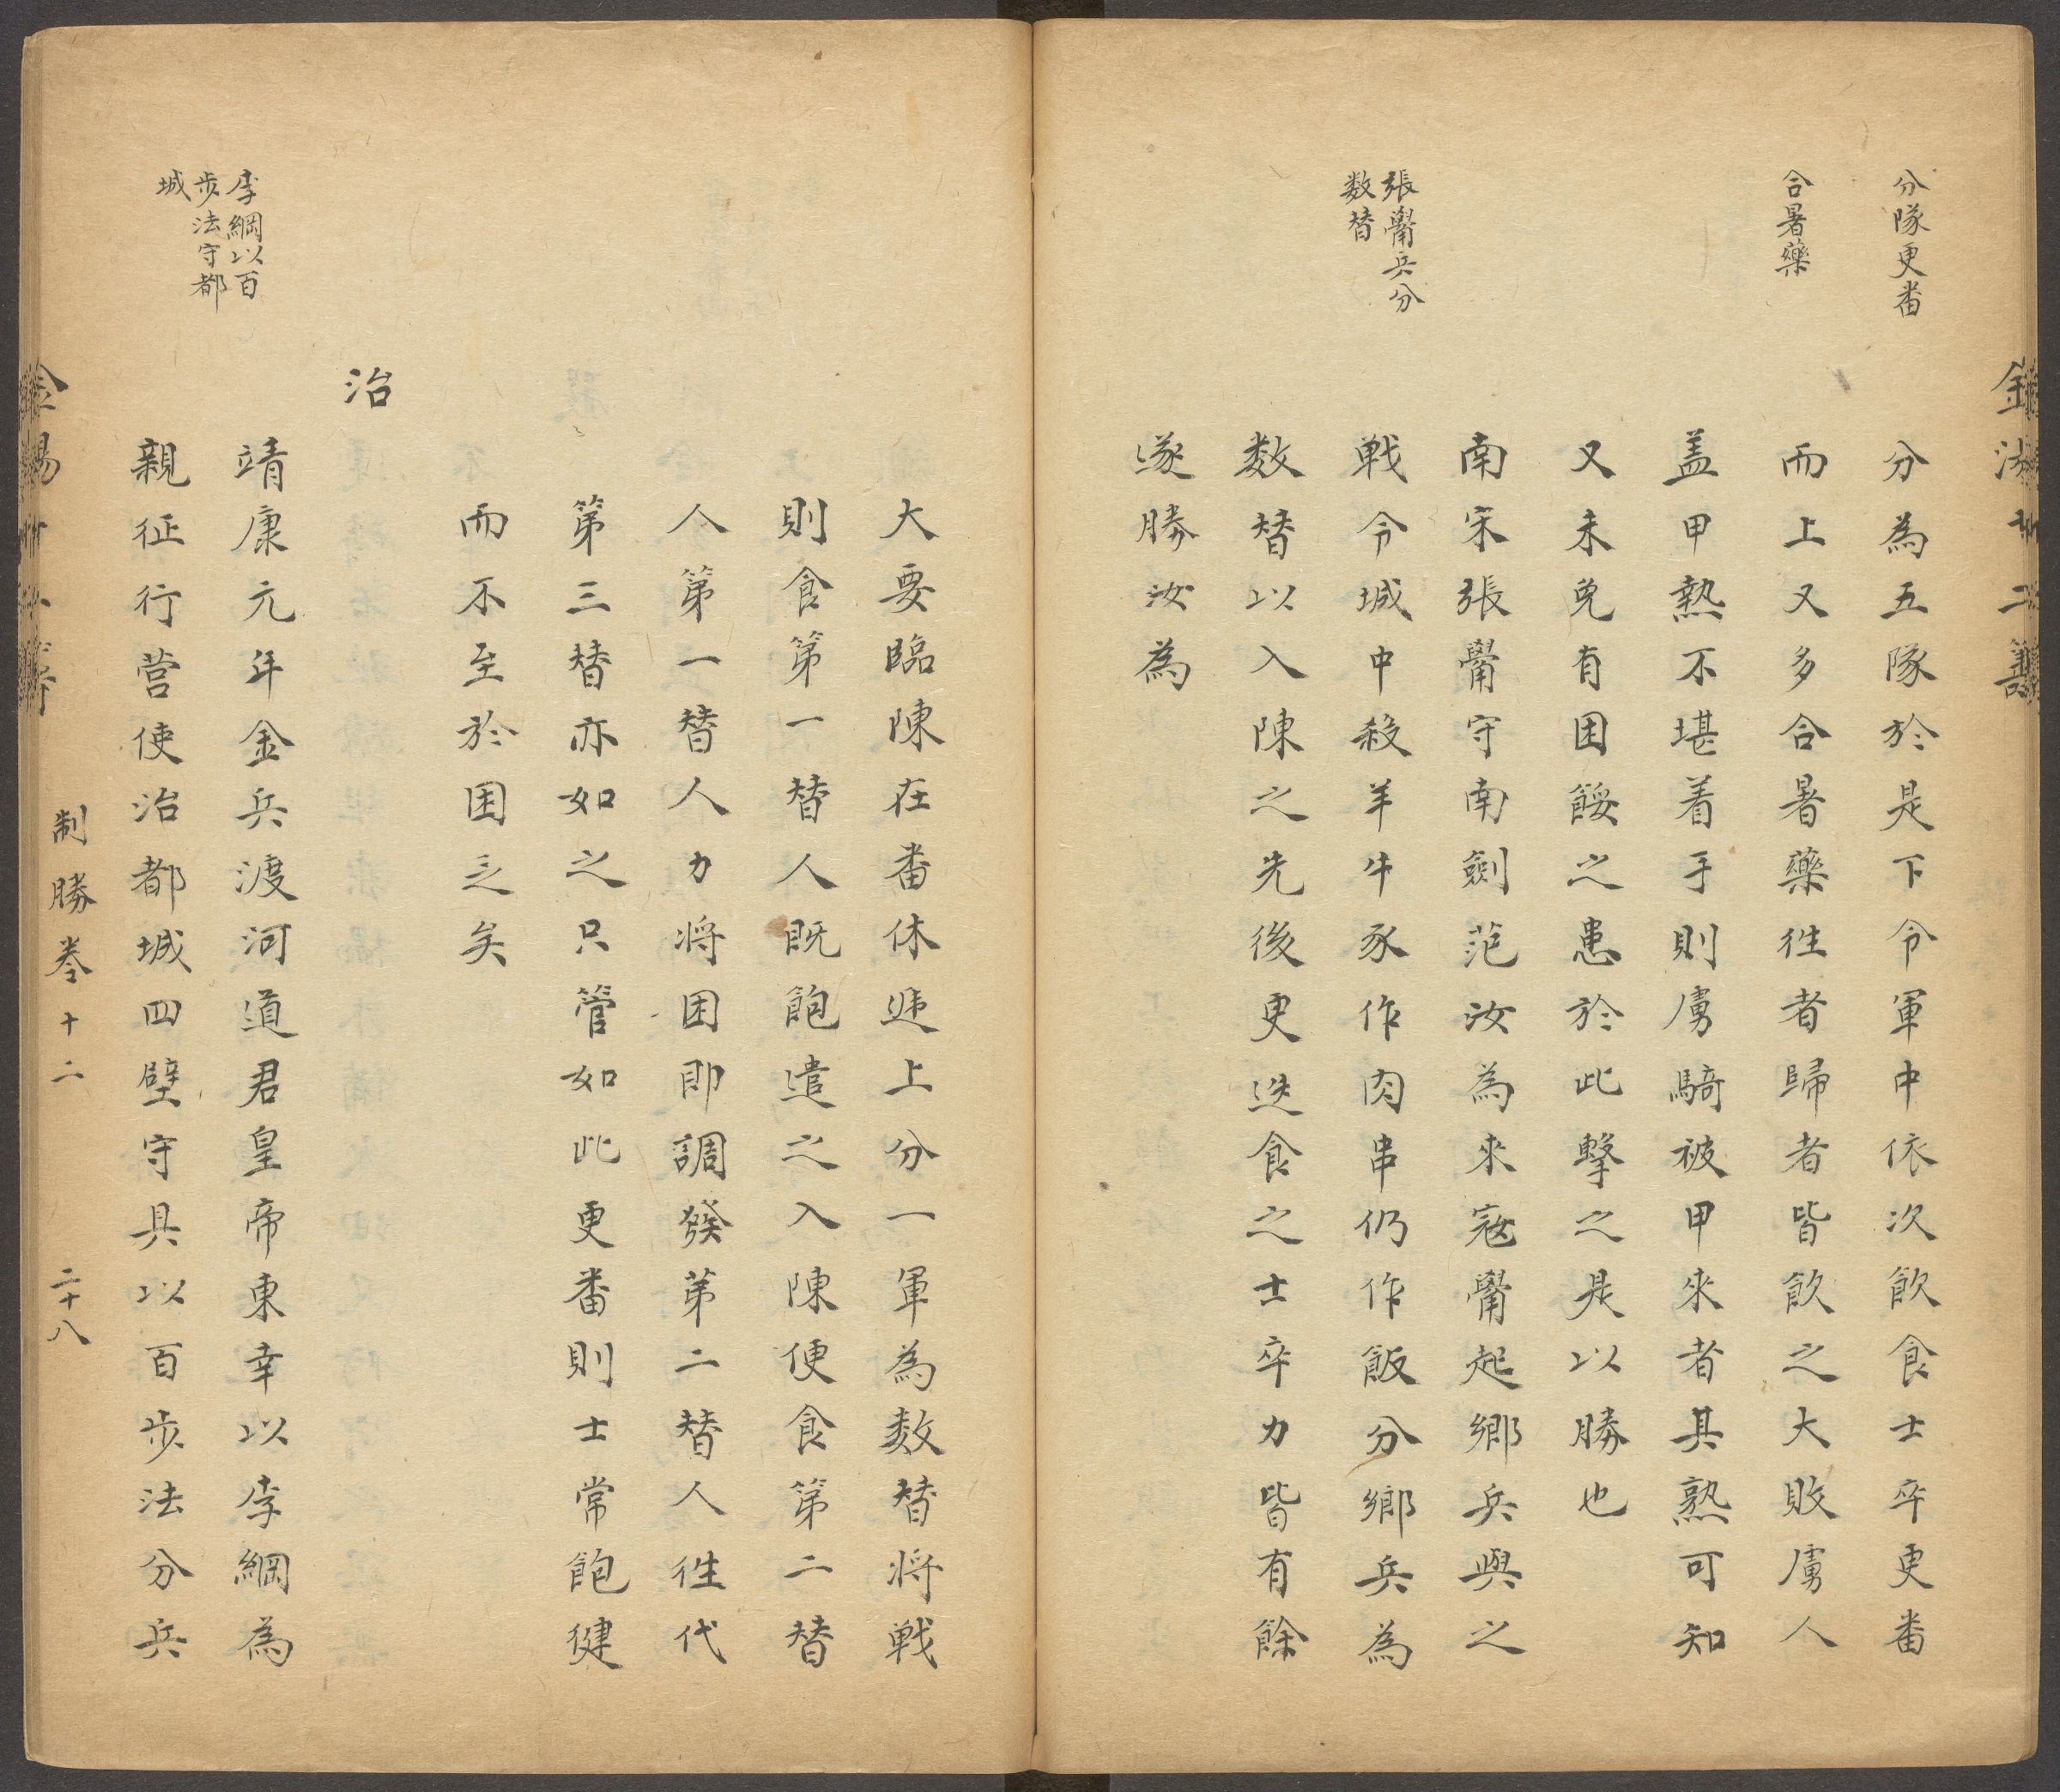 分隊更番
合暑藥
張觷兵分
数替
分為五隊於是下令軍中依次飲食士卒更番
而上又多合暑藥徃者歸者皆飲之大敗虜人
盖甲熱不堪着手則虜騎被甲來者其熟可知
又未免有困餒之患於此擊之是以勝也
南宋張觷守南劍范汝為來寇觷起鄉兵與之
戦令城中殺羊牛豕作肉串仍作飯分鄉兵為
数替以入陳之先後更迭食之士卒力皆有餘
遂勝汝為
大要臨陳在番休遞上分一軍為数替将戦
則食第一替人既飽遣之入陳便食第二替
人第一替人力将困即調發第二替人徃代
第三替亦如之只管如此更番則士常飽健
而不至於困乏矣
李綱以百
步法守都
城
治
靖康元年金兵渡河道君皇帝東幸以李綱為
親征行营使治都城四壁守具以百步法分兵
制勝卷十二 二十八